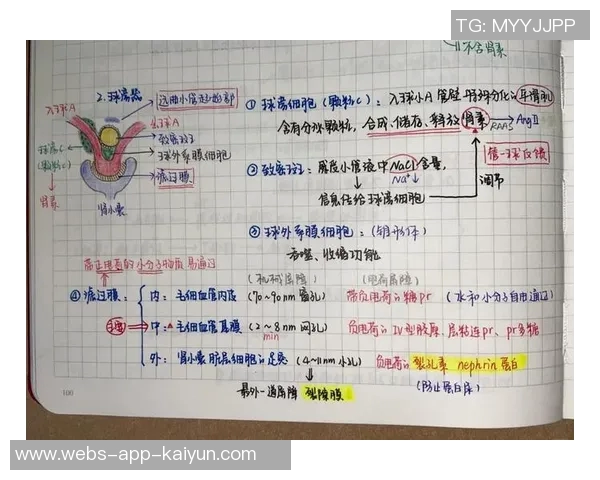 TG: MYYJJPP
不含肾素
2. 球旁器
远曲小管起始部
入球A
出球A
致密斑
球外系膜细胞
球旁C
(颗粒C)
滤过膜
肾素
肾小囊
① 球旁细胞(颗粒C): 入球小A管壁 特殊分化的 平滑肌
含有分泌颗粒, 合成、储存、释放 肾素 → AngⅡ
RAAS
管-球反馈
② 致密斑: 感应小管液中NaCl含量,
Na⁺↓
调节
信息传给球旁细胞
③ 球外系膜细胞:
吞噬、收缩功能
带正电荷的小分子物质易通过
(机械屏障) (电荷屏障)
④ 滤过膜: 内: 毛细血管内皮 (70~90nm 窗孔) 带负电荷的糖pr (水和小分子自由通过)
主要 中: 毛细血管基膜 (2~8nm 网孔) 负电荷的Ⅳ型胶原、层粘连pr、pr多糖
min
外: 肾小囊脏层细胞的足突 (4~11nm 小孔) 负电荷的 裂孔素 nephrin 蛋白
最外一道屏障 裂隙膜
(防止蛋白尿)
100
www.webs-app-kaiyun.com